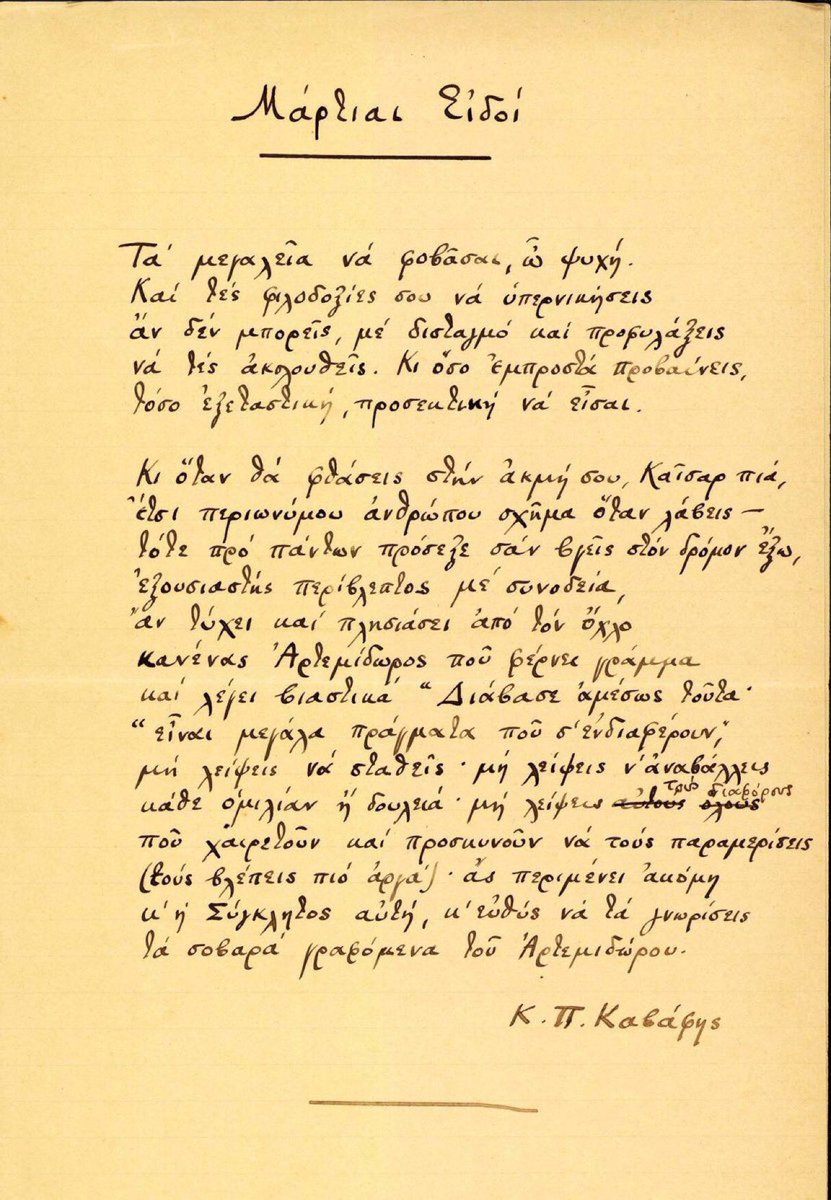 Μάρτιαι Εἰδοί
Τά μεγαλεῖα νά φοβᾶσαι, ὦ ψυχή.
Καί τές φιλοδοξίες σου νά ὑπερνικήσεις
ἄν δέν μπορεῖς, μέ δισταγμό καί προφυλάξεις
νά τές ἀκολουθεῖς. Κι ὅσο ἐμπροστά προβαίνεις,
τόσο ἐξεταστική, προσεκτική νά εἶσαι.
Κι ὅταν θά φθάσεις στήν ἀκμή σου, Καῖσαρ πιά,
ἔτσι περιωνύμου ἀνθρώπου σχῆμα ὅταν λάβεις —
τότε πρό πάντων πρόσεξε σάν βγεῖς στόν δρόμον ἔξω,
ἐξουσιαστής περίβλεπτος μέ συνοδεία,
ἄν τύχει καί πλησιάσει ἀπό τόν ὄχλο
κανένας Ἀρτεμίδωρος ποῦ φέρνει γράμμα
καί λέγει βιαστικά “Διάβασε ἀμέσως τοῦτα·
“εἶναι μεγάλα πράγματα ποῦ σ’ ἐνδιαφέρουν,”
μή λείψεις νά σταθεῖς· μή λείψεις ν’ ἀναβάλλεις
κάθε ὁμιλίαν ἤ δουλειά· μή λείψεις αὐτούς ὅλους τούς διαφόρους
ποῦ χαιρετοῦν καί προσκυνοῦν νά τούς παραμερίσεις
(τούς βλέπεις πιό ἀργά)· ἄς περιμένει ἀκόμη
κ’ ἡ Σύγκλητος αὐτή, κ’ εὐθύς νά τά γνωρίσεις
τά σοβαρά γραφόμενα τοῦ Ἀρτεμιδώρου.
Κ. Π. Καβάφης